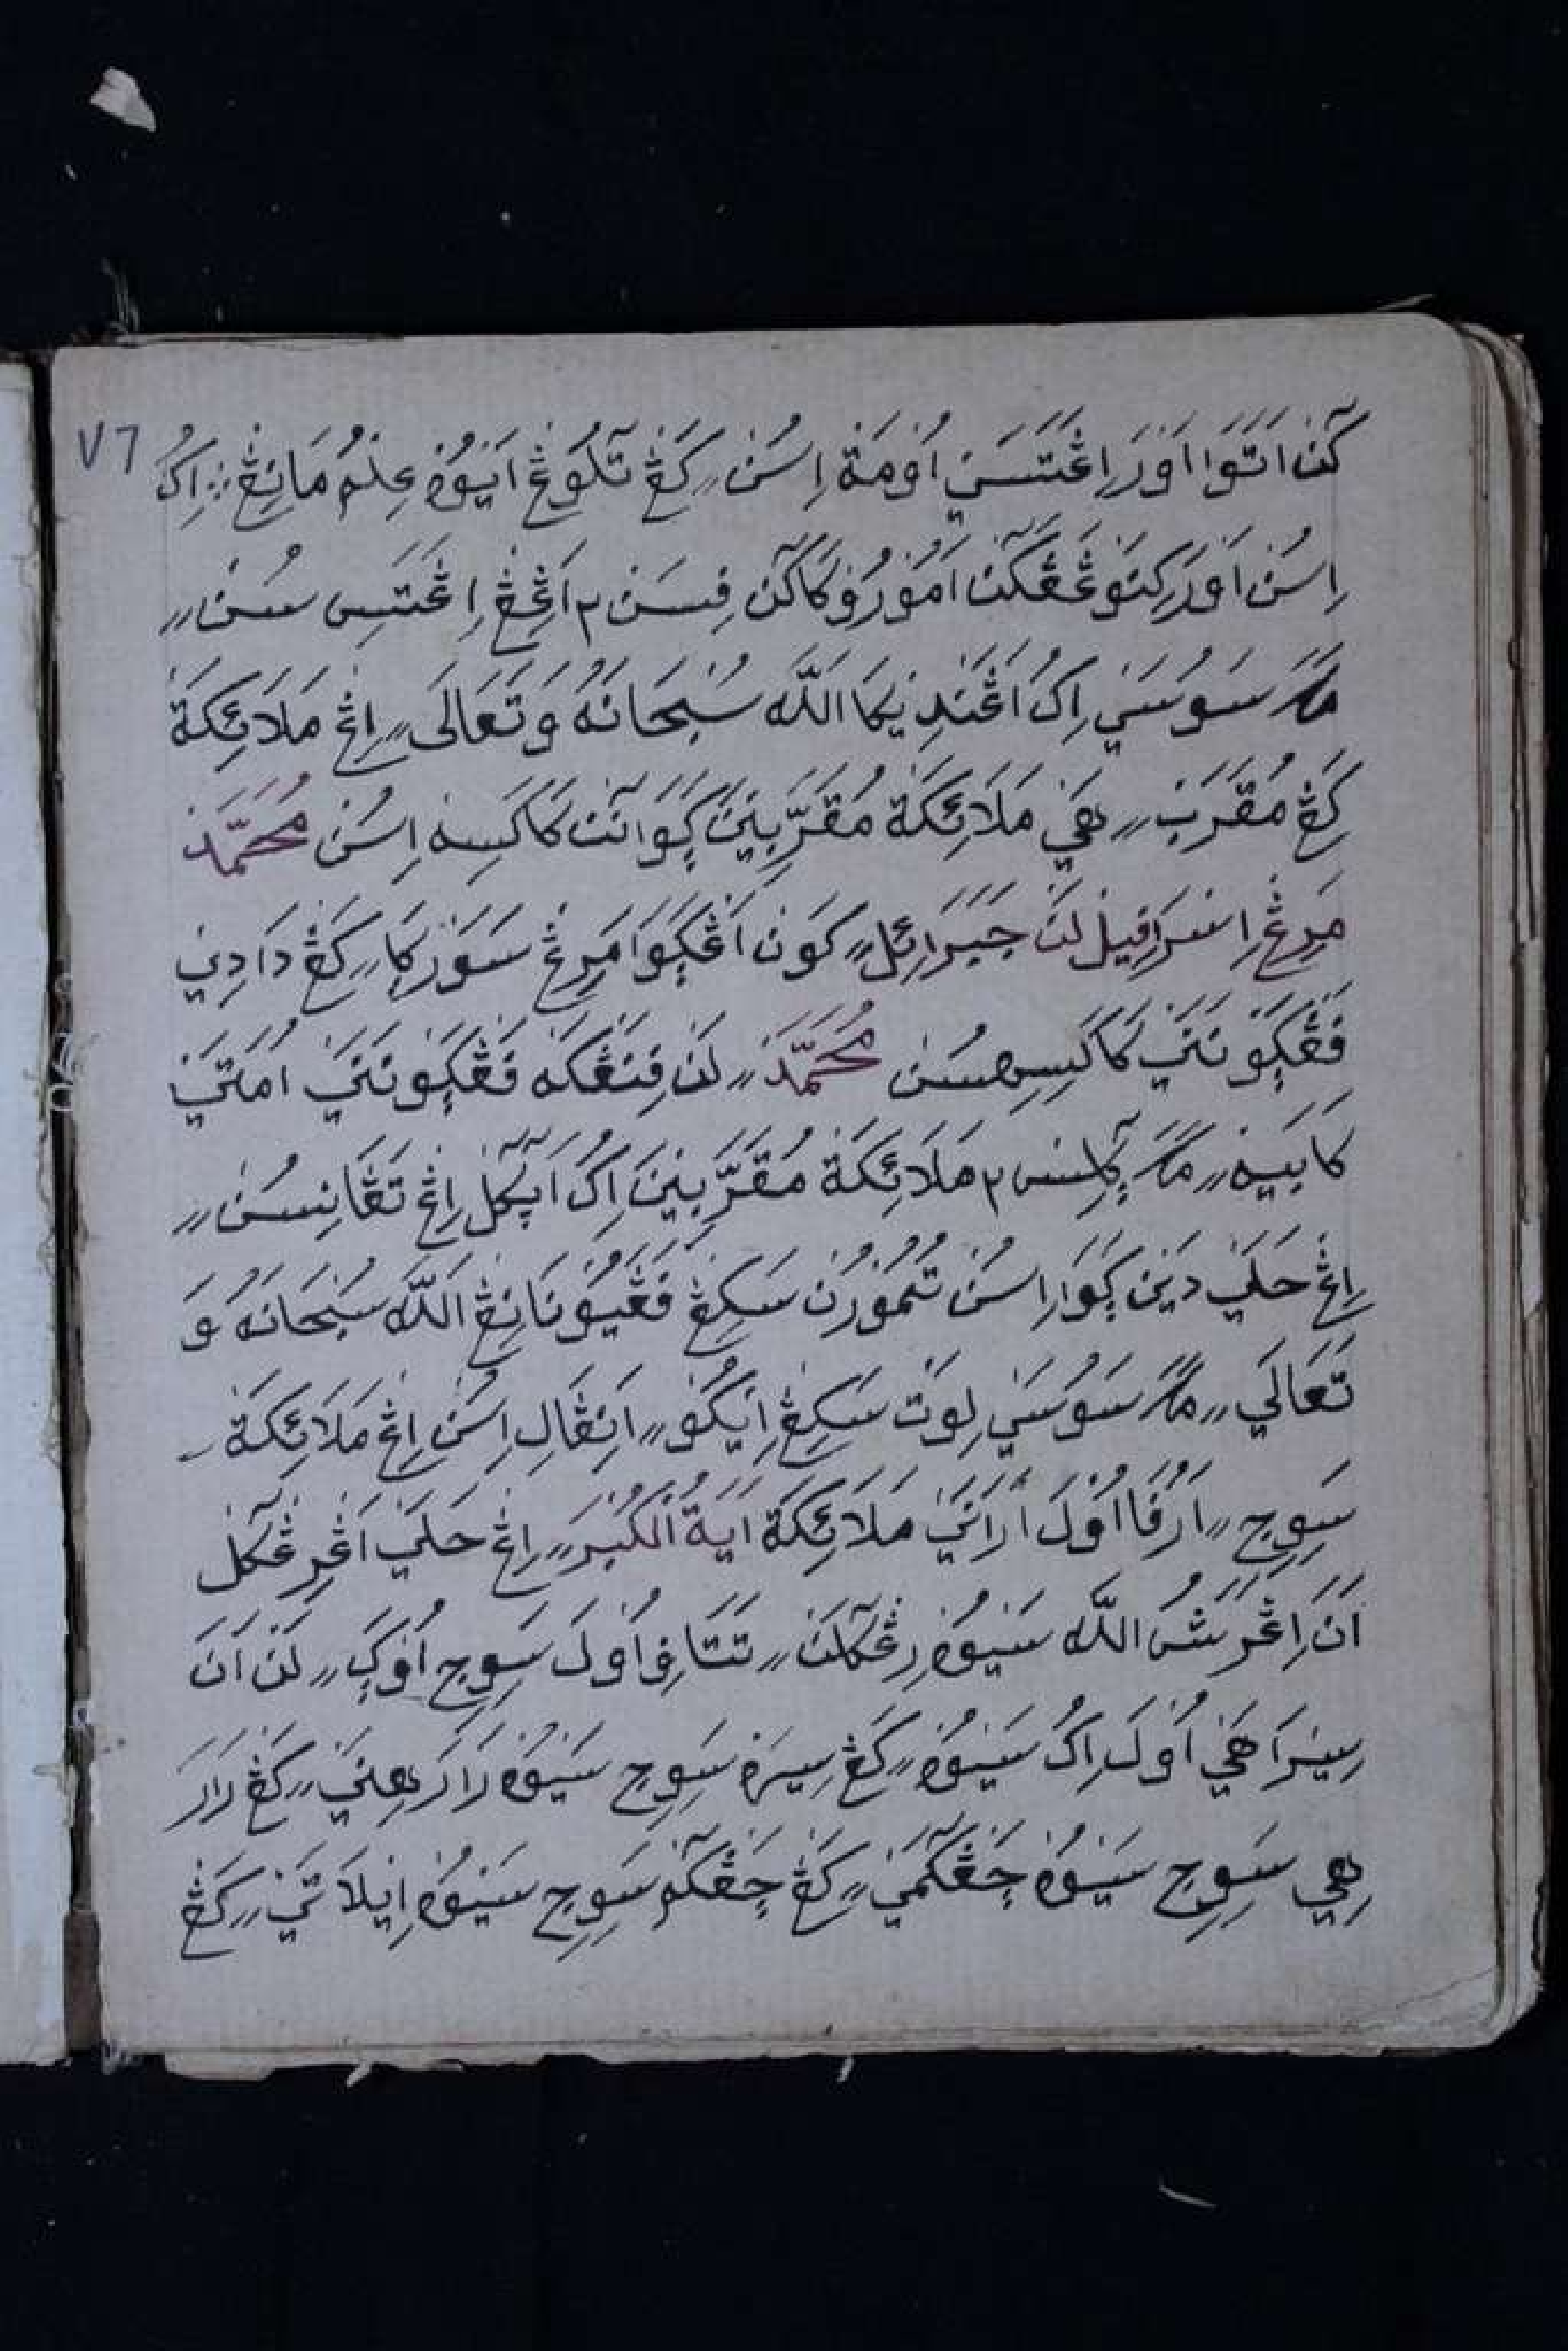 ٧٦
كٓنْ اَتَوَا اَوْرَ اِڠْتَسَنِيْ اُوْمَةْ اِسُنْ ⹁ كَڠْ تٓلُوْڠْ اَيُوْهْ عِلْمُ مَانِڠْ ؞ اِكُ
اِسُنْ اَوْرَ كِنَوْڠَڤَكٓنْ اَمُوْرُوْكَاكٓنْ فِسَنْ٢ اَڠِڠْ اِڠْتَسِ سُنْ ⹁
مَكَ سَوُسَيْ اِكُ اَڠَنْدِيْكَا اللّٰه سُبْحَانَهُ وَتَعَالَى ⹁ اِڠْ مَلَائِكَةْ
كَڠْ مُقَرَبْ ⹁ هَيْ مَلَائِكَةْ مُقَرَّبِيْنَ ڮَوَانٓنْ كَاكَسِهْ اِسُنْ مُحَمَّدْ
مَرِڠْ اِسْرَافِيْل لَنْ جَبَرَائِلْ ⹁ كَوْن اَڠْڮَوَا مَرِڠْ سَوَرْڮَا ⹁ كَڠْ دَادِيْ
فَڠْڮَوْنَنَيْ كَاكَسِهِسُنْ مُحَمَّدْ ⹁ لَنْ فِنَڠْكَهْ فَڠْڮَوْنَنَيْ اُمَتَيْ
كَابَيْهْ ⹁ مَكَ ڮٓلِسْ٢ مَلَائِكَةْ مُقَرَّبِيْنَ اِكُ اَڮٓلٓلْ اِڠْ تَڠَانِسُنْ ⹁
اِڠْ حَلَيْ دَيْنْ ڮَوَا اِسُنْ تُمُوْرُنْ سَكِڠْ فَڠَيُوْنَانِڠْ اللّٰه سُبْحَانَهُ وَ
تَعَالَي ⹁ مَكَ سَوُسَيْ لِوَتْ سَكِڠْ اِيْكُوْ ⹁ اَنِڠَالِ اِسُنْ اِڠْ مَلَائِكَةْ
سَوِجِ ⹁ اَرُفَا اُوْلَ اَرَانَيْ مَلَائِكَةْ اَيَةُ الْكُبْرَ ⹁ اِڠْ حَلَيْ اَڠْرِڠْكٓلْ
اَنَ اِڠْ عَرَشُ اللّٰه سَيُوْهْ رِڠْكٓلَنْ ⹁ تَتَافِ اُوْلَ سَوِجِ اُوْڮَ ⹁ لَنْ اَنَ
سِيْرَاهَيْ اُوْلَ اِكُ سَيُوْهْ ⹁ كَڠْ سِيْرَهْ سَوِجِ سَيُوْهْ رَارَهِنَيْ ⹁ كَڠْ رَارَ
هِي سَوِجِ سَيُوْهْ چَڠْكٓمَيْ ⹁ كَڠْ چَڠْكٓمْ سَوِجِ سَيُوْهْ اِيْلَاتَيْ ⹁ كَڠْ